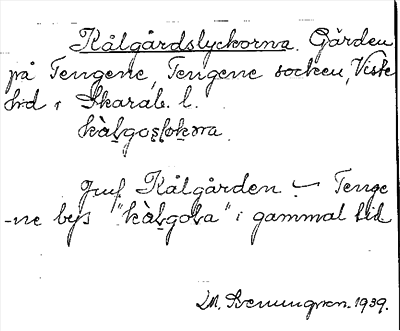 Kålgårdslyckorna. Gården
på Tengene, Tengene socken, Viste
hd i Skarab. l.
Jmf. Kålgården – Tenge
-ne bys "kàḷgoḷa" i gammal tid
M. Benungren. 1939.